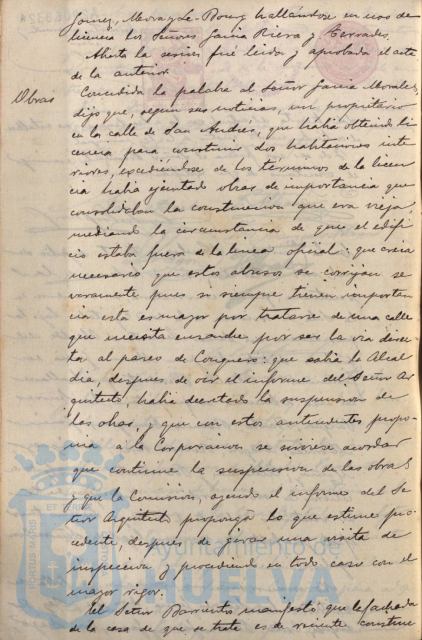 Jaimez, Mora y Le-Bourg hallándose en uso de
licencia los Señores García Riera y Terrades.
Abierta la sesión fué leida y aprobada el acta
de la anterior.
Obras
Concedida la palabra al Señor Garcia Morales,
dijo que, segun sus noticias, un propietario
en la calle de San Andrés, que habia obtenido li
cencia para construir dos habitaciones inte
riores, excediéndose de los términos de la licen
cia habia ejecutado obras de importancia que
consolidaban la construccion que era vieja,
mediando la circunstancia de que el edifi
cio estaba fuera de la linea oficial: que creia
necesario que estos abusos se corrijan se
veramente pues si siempre tienen importan
cia esta es mayor por tratarse de una calle
que necesita ensanche por ser la via direc
ta al paseo de Congreso: que sabia la Alcal
dia, despues de oir el informe del Señor Ar
quitecto, habia decretado la suspension de
las obras, y que con estos antecedentes propo
nia á la Corporacion se sirviese acordar
que continue la suspension de las obras
y que la Comision, oyendo el informe del Se
ñor Arquitecto proponga lo que estime pro
cedente, despues de girar una visita de
inspeccion y procediendo en todo caso con el
mayor rigor.
El Señor Barrientos manifestó que la fachada
de la casa de que se trata es de reciente construc
Ayuntamiento de
HUELVA